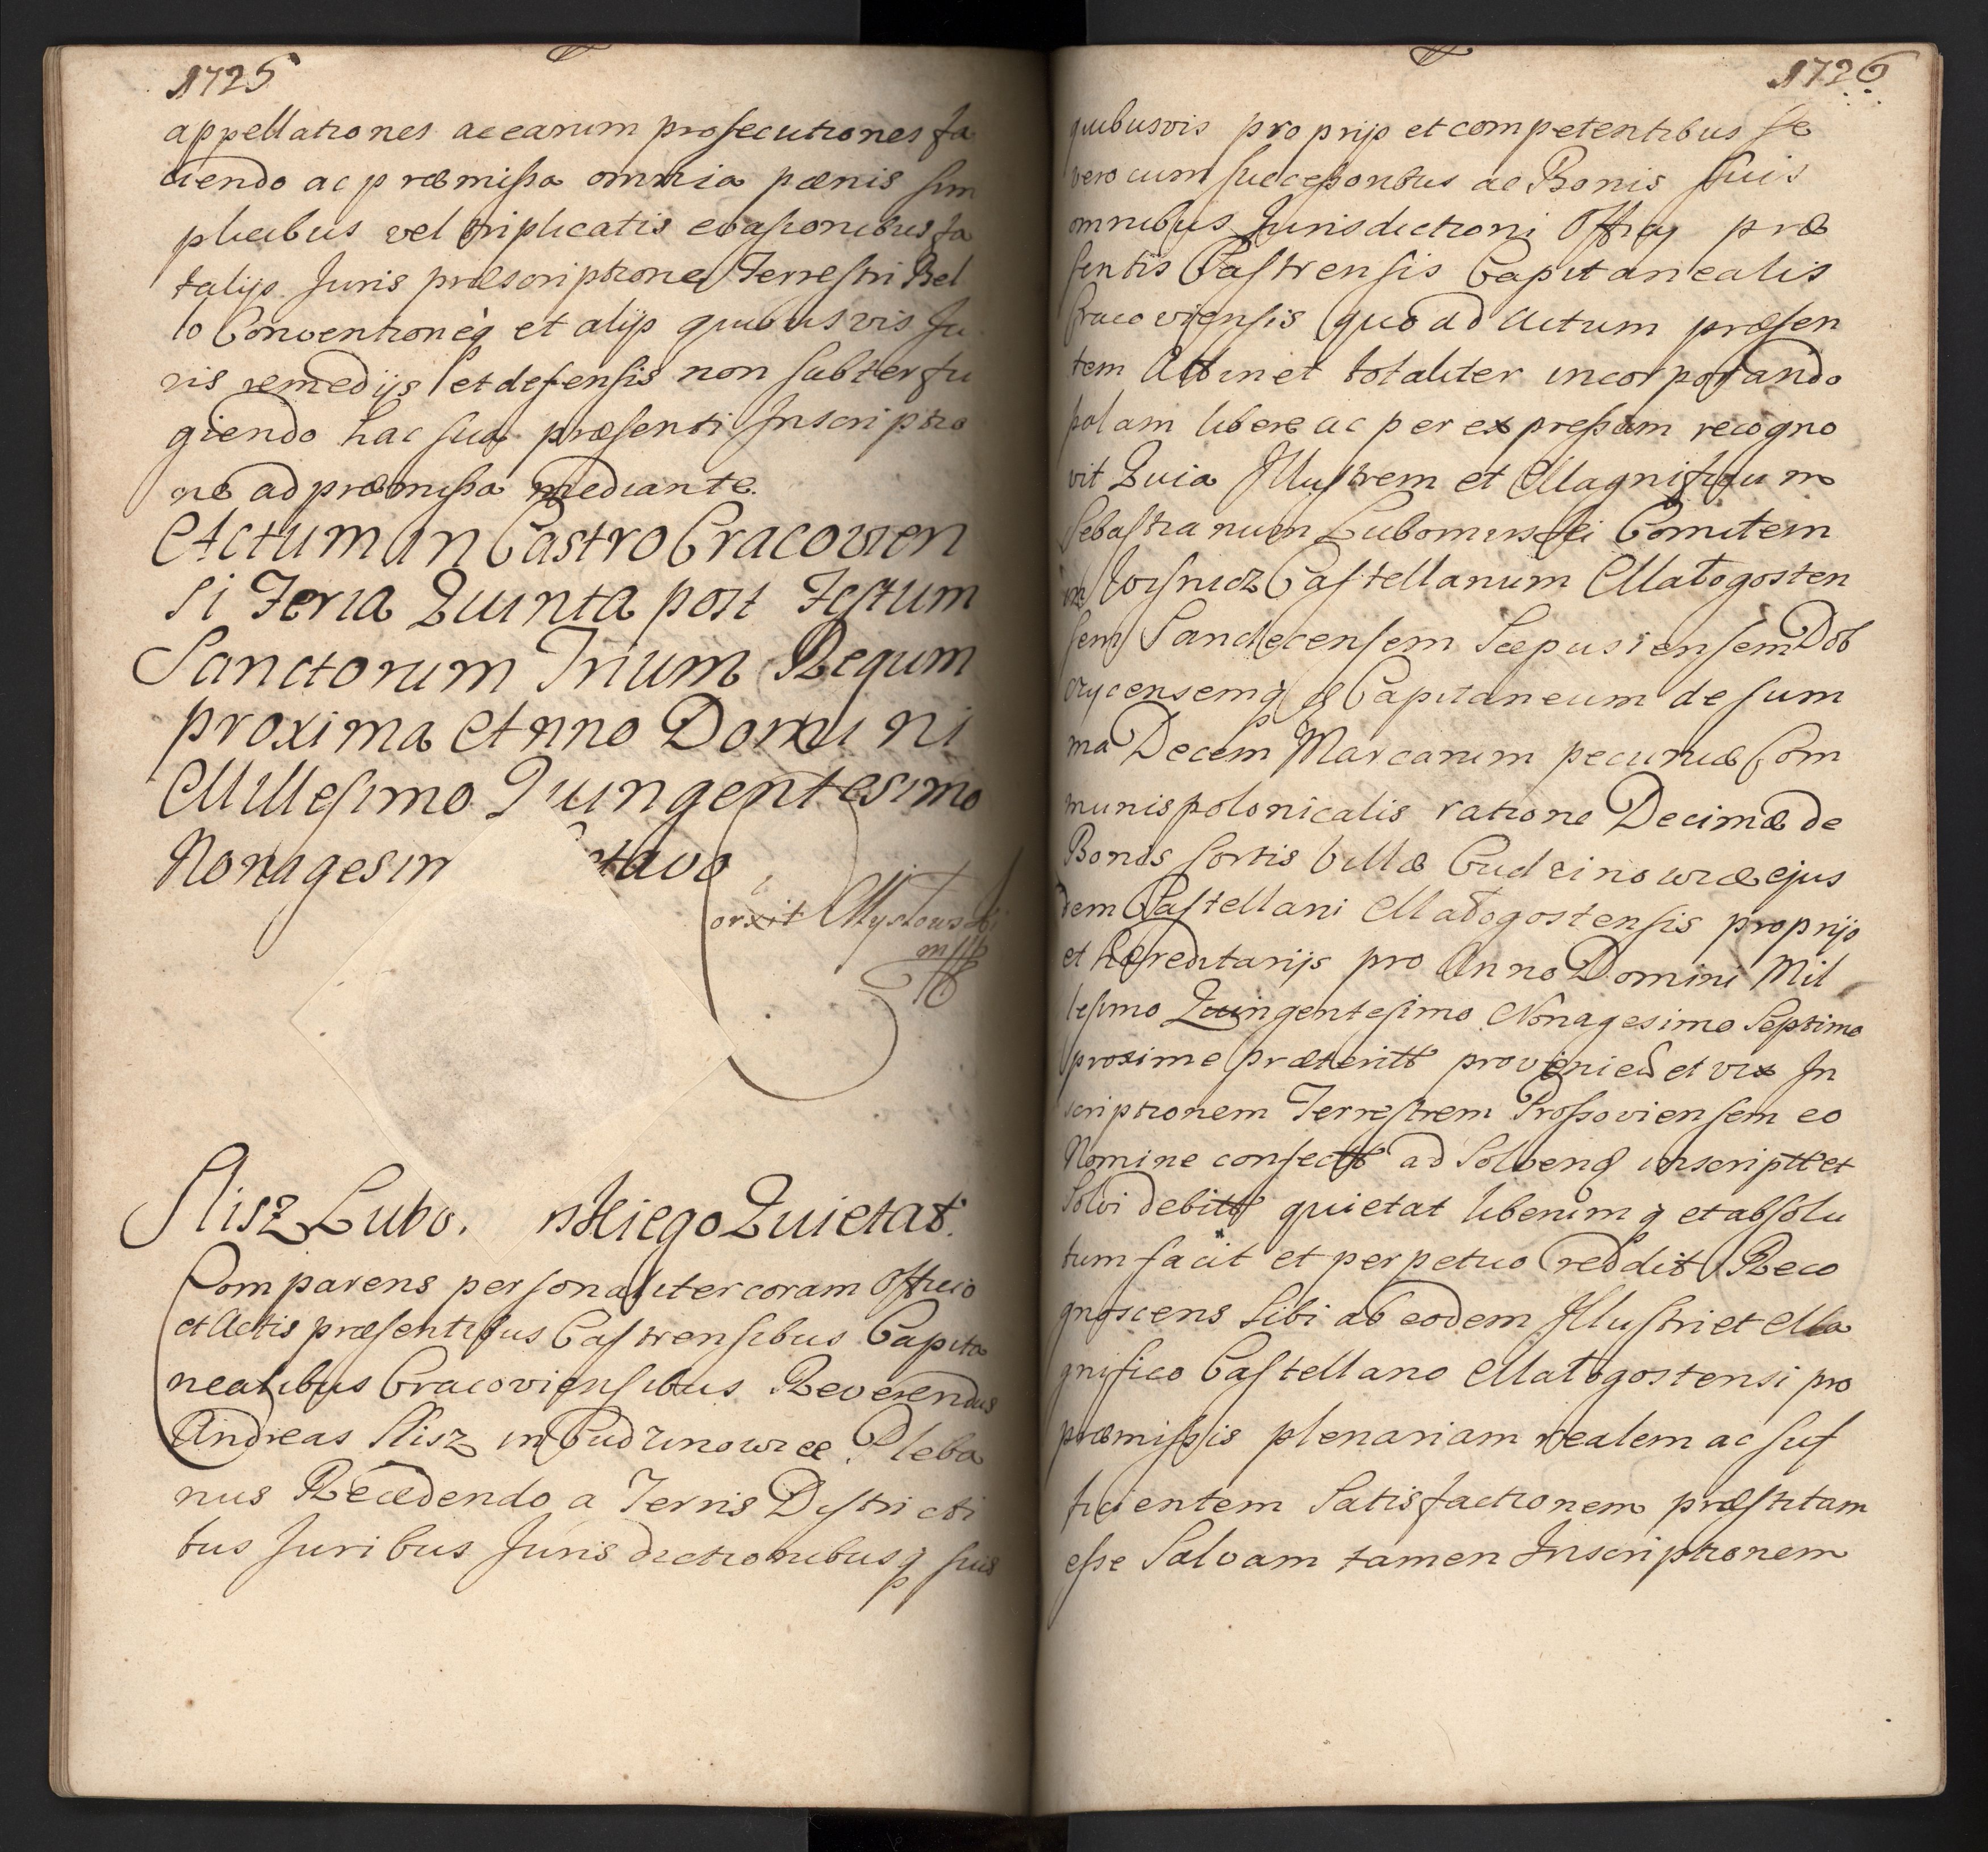 1725
appellationes ac earum prosecutiones fa
ciendo ac præmissa omnia pænis sim
plicibus vel triplicatis evasionibus fa
talijs Juris præscriptione Terrestri Bel
lo Conventioneq̀ et alijs quibusvis Ju
ris remedijs et defensis non subterfu
giendo hac sua præsenti Inscriptio
ne ad præmissa mediante.
Actum in Castro Cracovien
si Feria Quinta post Festum
Sanctorum Trium Regum
proxima Anno Domini
Millesimo Quingentesimo
Nonagesim ctavo
Corxit Myslowski
mpp
Slisz Lubo. rskiego Quietat.
Comparens personaliter coram Officio
et Actis præsentibus Castrensibus Capita
nealibus Cracoviensibus Reverendus
Andreas Slisz in Cudzinowice Pleba
nus Recedendo a Terris Districti
bus Juribus Jurisdictionibusq̀ suis
1726
quibusvis proprijs et competentibus se
vero cum successoribus ac Bonis suis
omnibus Jurisdictioni Officij præ
sentis Castrensis Capitanealis
Cracoviensis quo ad Actum præsen
tem Attinet totaliter incorporando
palam libere ac per expressum recogno
vit Quia Illustrem et Magnificum
Sebastianum Lubomirski Comitem
in Wisnicz Castellanum Małogosten
sem Sandecensem Scepusiensem Dob
czycensemq̀ Capitaneum de sum
ma Decem Marcarum pecuniæ Com
munis polonicalis ratione Decimæ de
Bonis sortis Villæ Cudzinowice ejus
dem Castellani Małogostensis proprijs
et hæreditarijs pro Anno Domini Mil
lesimo Quingentesimo Nonagesimo Septimo
proxime præteritt provenien et vix In
scriptionem Terrestrem Prossoviensem eo
Nomine confectt ad Solvend inscriptt et
Solvi debitt quietat liberumq̀ et absolu
tum facit et perpetuo reddit Reco
gnoscens sibi ab eodem Illustri et Ma
gnifico Castellano Małogostensi pro
præmissis plenariam realem ac suf
ficientem Satisfactionem præstitam
esse Salvam tamen Inscriptionem